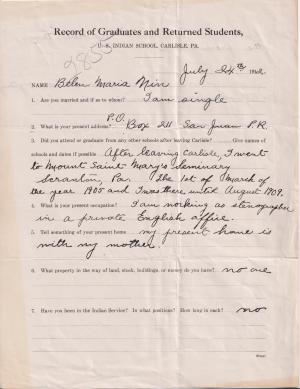 2855
Record of Graduates and Returned Students,
U. S. INDIAN SCHOOL, CARLISLE, PA.
July 24th 191
NAME Belen Maria Nin
1. Are you married and if so to whom? I am single
2. What is your present address? P.O. Box 211 San Juan P.R.
3. Did you attend or graduate from any other schools after leaving Carlisle? Give names of
schools and dates if possible After leaving Carlisle, I went
to Mount Saint Mary's Seminary
Scranton, Pa. The 1st of March of
the year 1905 and I was there until August 1909.
4. What is your present occupation? I am working as stenographer
in a private English office.
5. Tell something of your present home my present home is
with my mother.
6. What property in the way of land, stock, buildings, or money do you have? no one
7. Have you been in the Indian Service? In what positions? How long in each? no